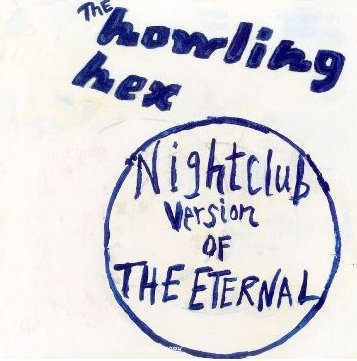 The
howling
hex
Nightclub
Version
OF
THE ETERNAL